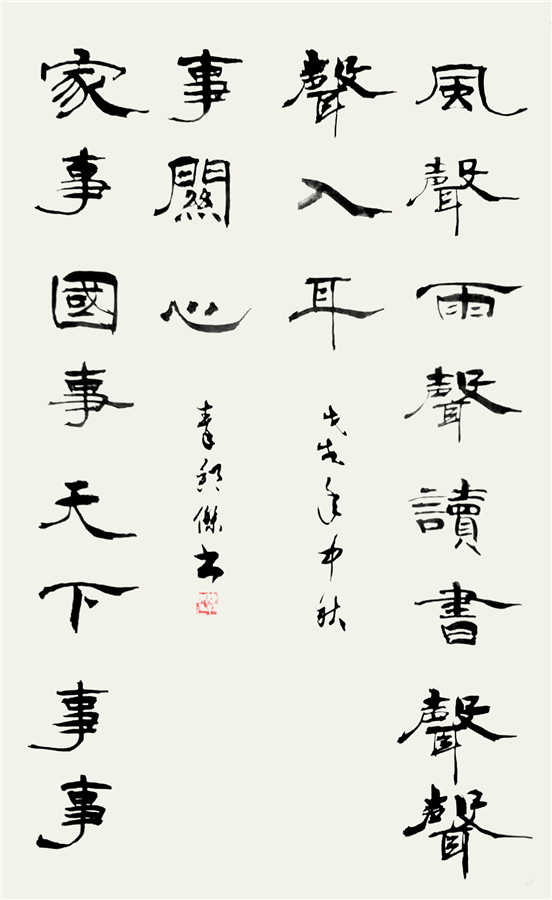 風聲雨聲讀書聲聲
聲入耳
戊戌年中秋
家事國事天下事事
事關心
傑书